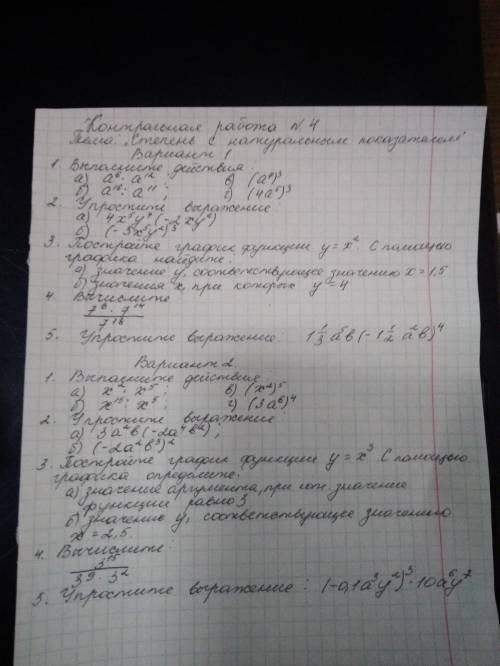 Контрольная работа N.4
Тема: „Степень с натуральным показателем"
Вариант 1
1. Выполните действия:
а) a⁶ · a¹² в) (a⁴)³
б) a¹⁸ : a¹¹; г) (4a⁵)³
2. Упростите выражение
а) 4x⁵y⁴(-2xy²)
б) (-3x⁵y²)³
3. Постройте график функции y = x². С помощью
графика найдите:
а) значение y, соответствующее значению x = 1,5
б) значения x, при которых y = 4
4. Вычислите
7⁶ · 7¹⁴
7¹⁸
5. Упростите выражение: 1 1/3 a⁵b(-1 1/2 a²b)⁴
Вариант 2.
1. Выполните действия:
а) x² · x⁵; в) (x²)⁵
б) x¹⁵ : x⁵; г) (3a⁶)⁴
2. Упростите выражение
а) 3a²b(-2a⁴b²);
б) (-2a²b³)²
3. Постройте график функции y = x³. С помощью
графика определите:
а) значение аргумента, при кот. значение
функции равно 3
б) значение y, соответствующее значению
x = 2,5.
4. Вычислите:
3¹⁵
3⁹ · 3²
5. Упростите выражение: (-0,1a³y²)³ · 10a⁶y⁷